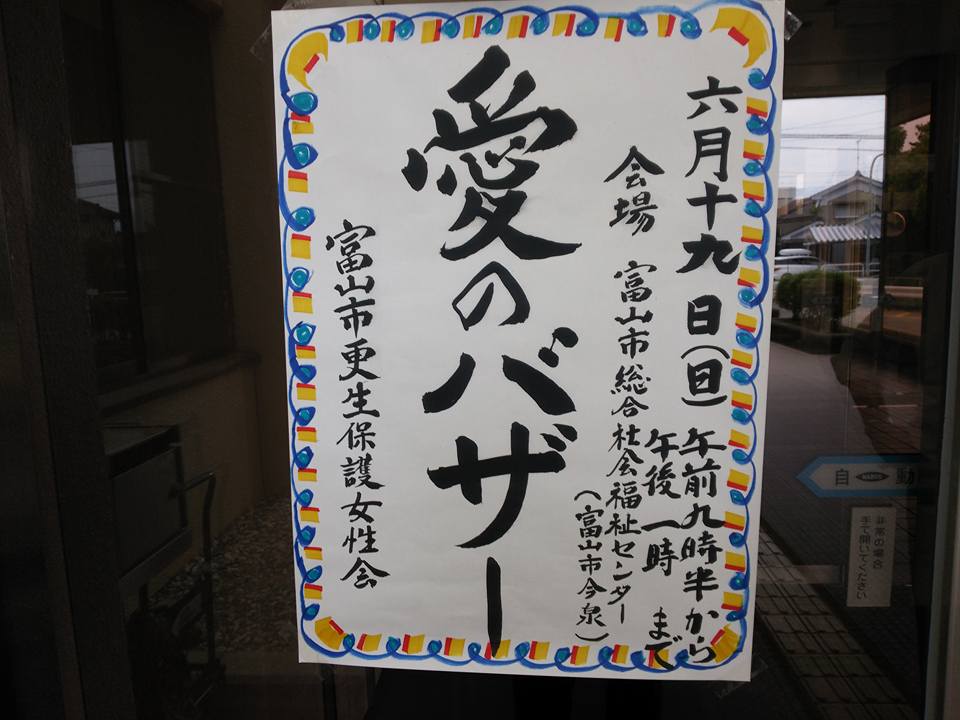 六月十九日(日)
午前九時半から
午後一時まで
会場 富山市総合社会福祉センター
(富山市今泉)
愛のバザー
富山市更生保護女性会
自動
非常の場合
手で開いてください